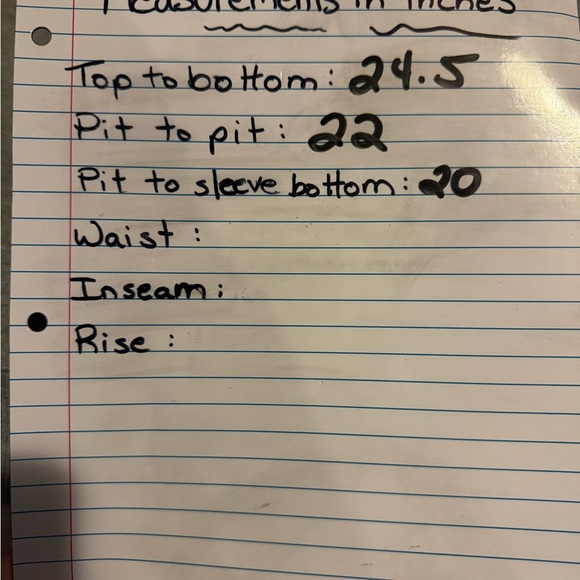 Measurements in Inches
Top to bottom: 24.5
Pit to pit: 22
Pit to sleeve bottom: 20
Waist:
Inseam:
Rise: